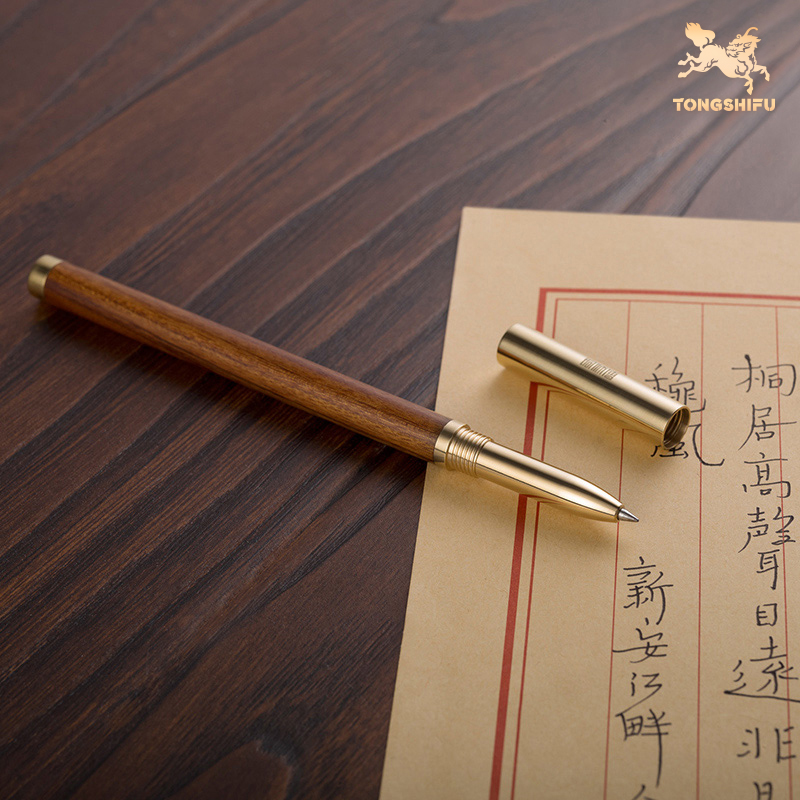 TONGSHIFU
桐居高聲自遠非
穐風
新安江畔